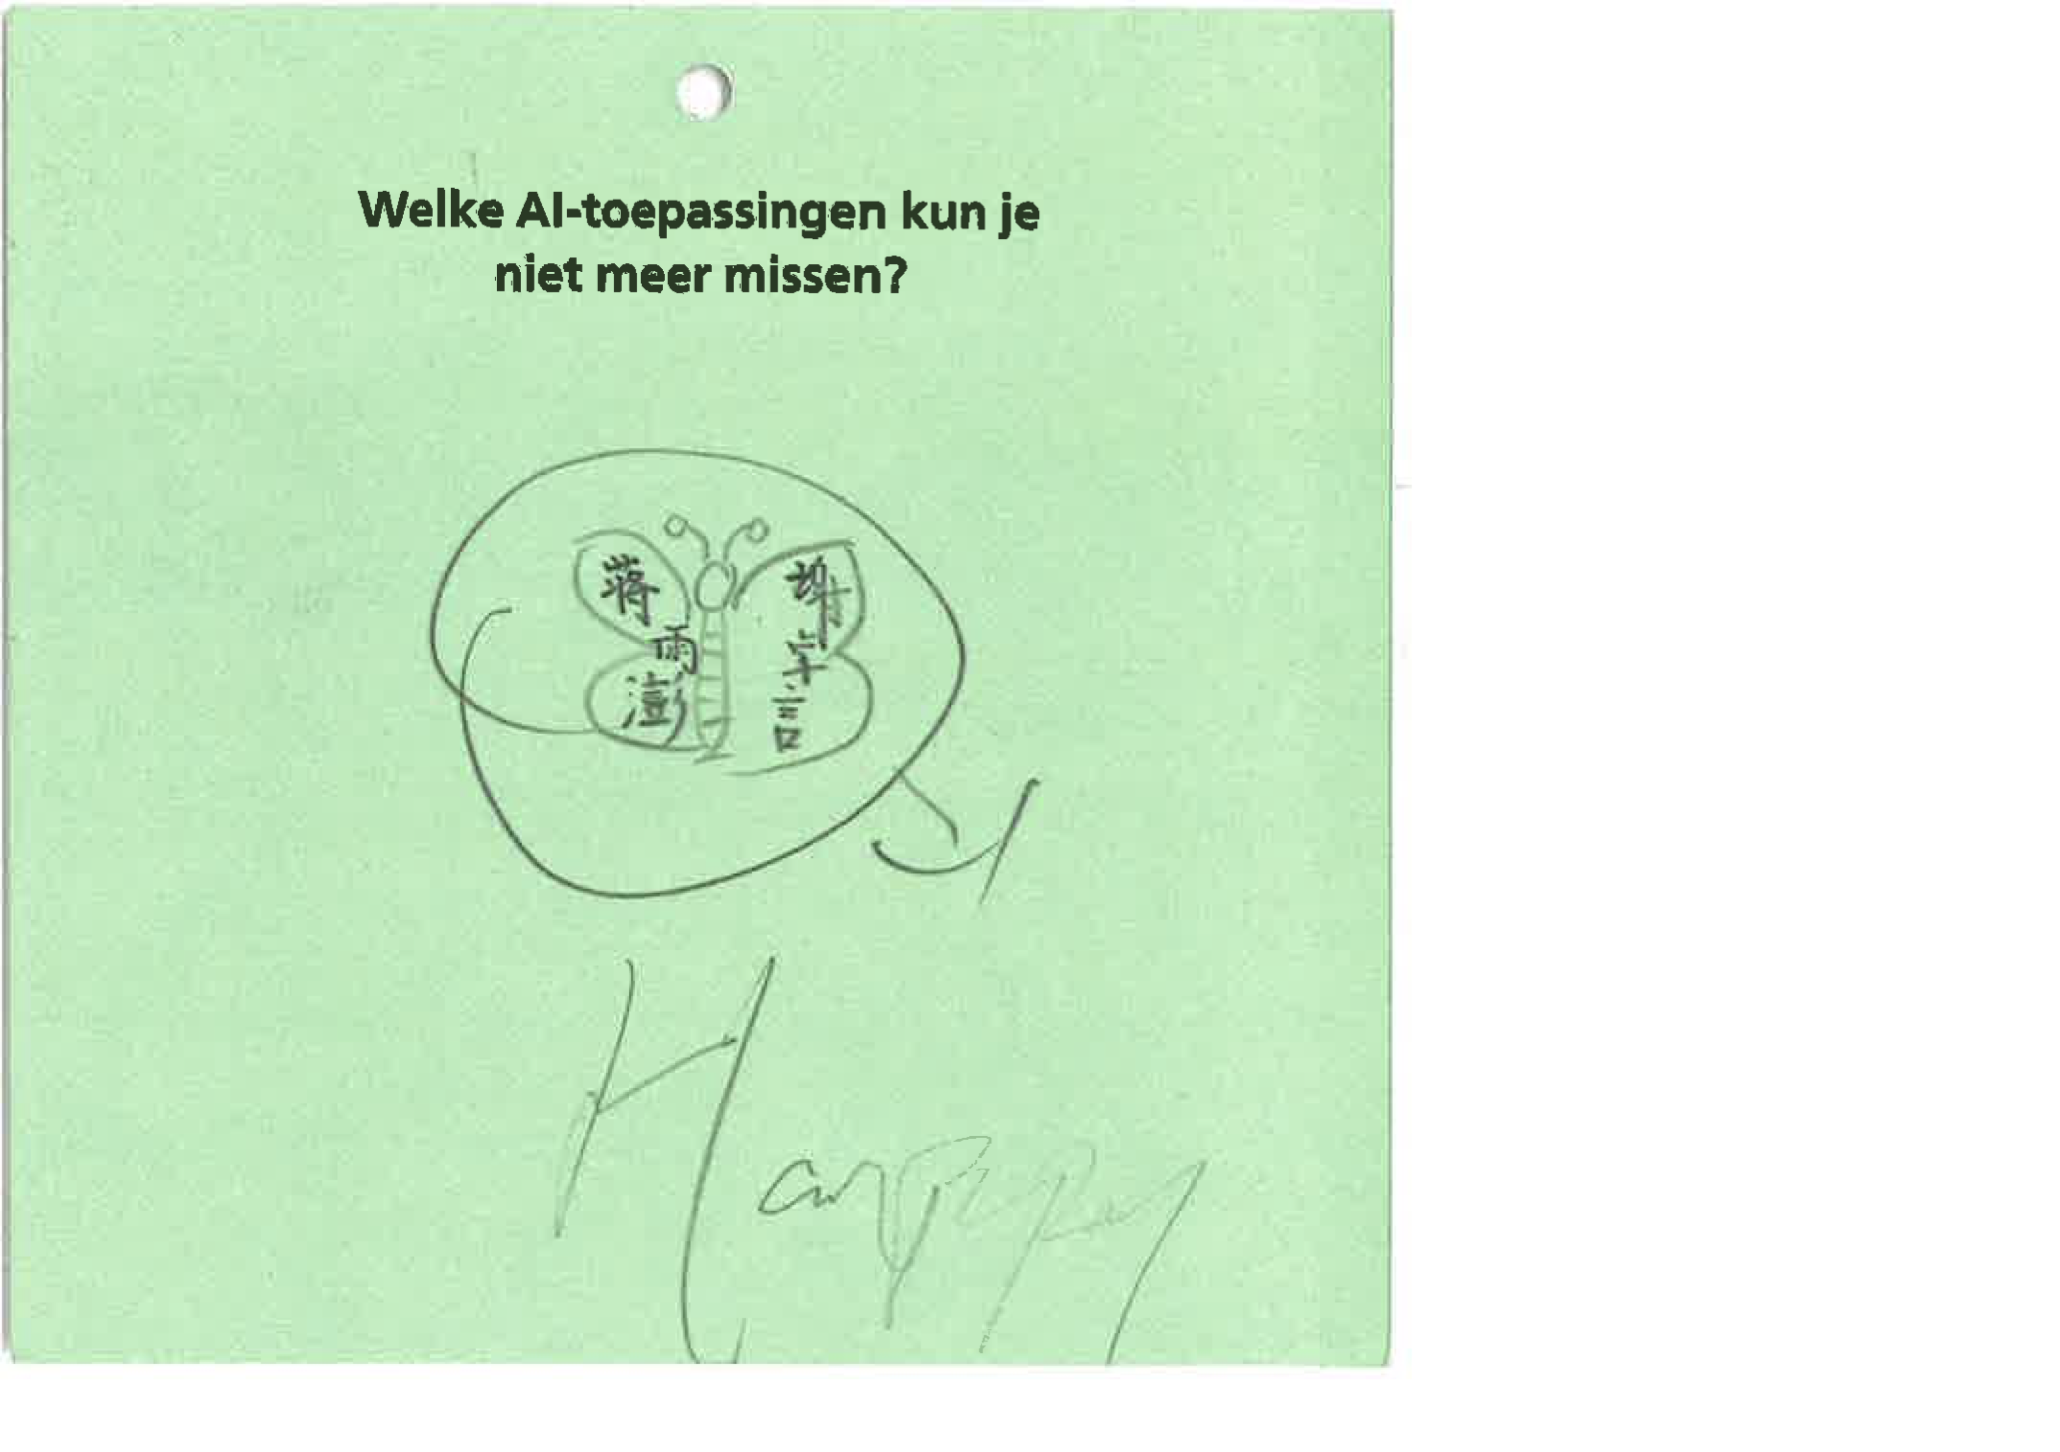 Welke AI-toepassingen kun je
niet meer missen?
蒋
雨
澍
Happy